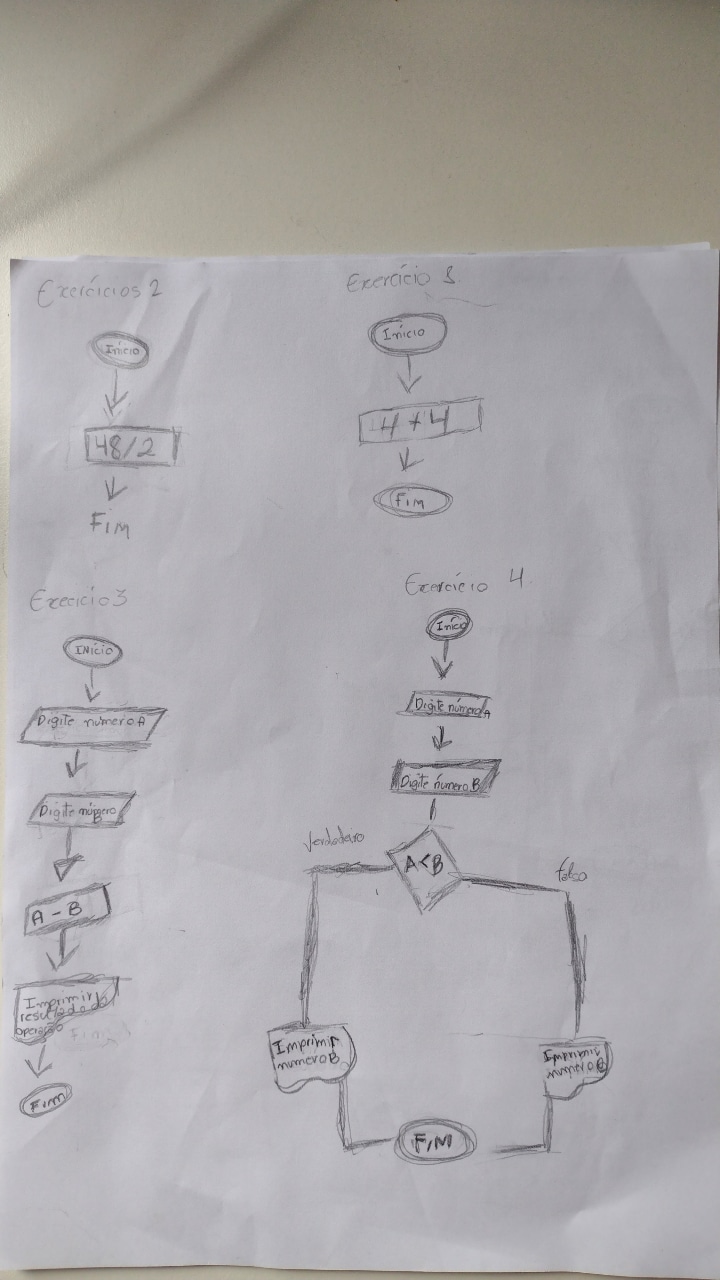 Exercícios 2
Início
48/2
Fim
Exercício 1
Início
4 + 4
Fim
Execicio 3
INício
Digite número A
Digite número B
A - B
Imprimir
resultado da
operação
Fim
Exercício 4
Início
Digite número A
Digite número B
A<B
Verdadeiro
falso
Imprimir
numero B
Imprimir
número B
FIM